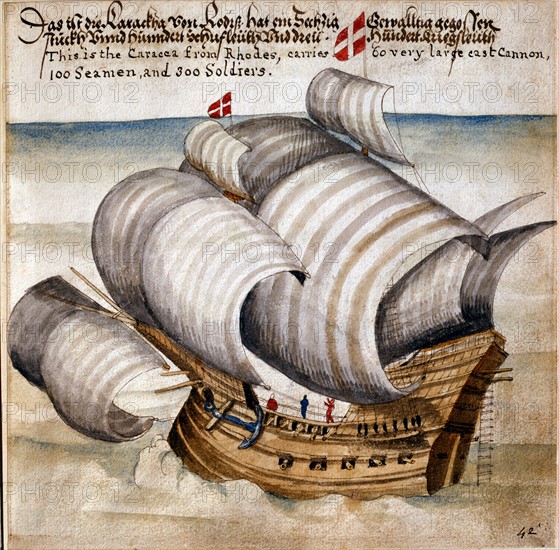 Das ist die Karackha Von Rodiß hat ein Sechzig Gewalltig gegossen
stuckh Vnnd Hundert Schufleuth Vnd dreü Hundert Kriegsleuth
This is the Caracca from Rhodes, carries 60 very large cast Cannon,
100 Seamen, and 300 Soldiers.
42
PHOTO12